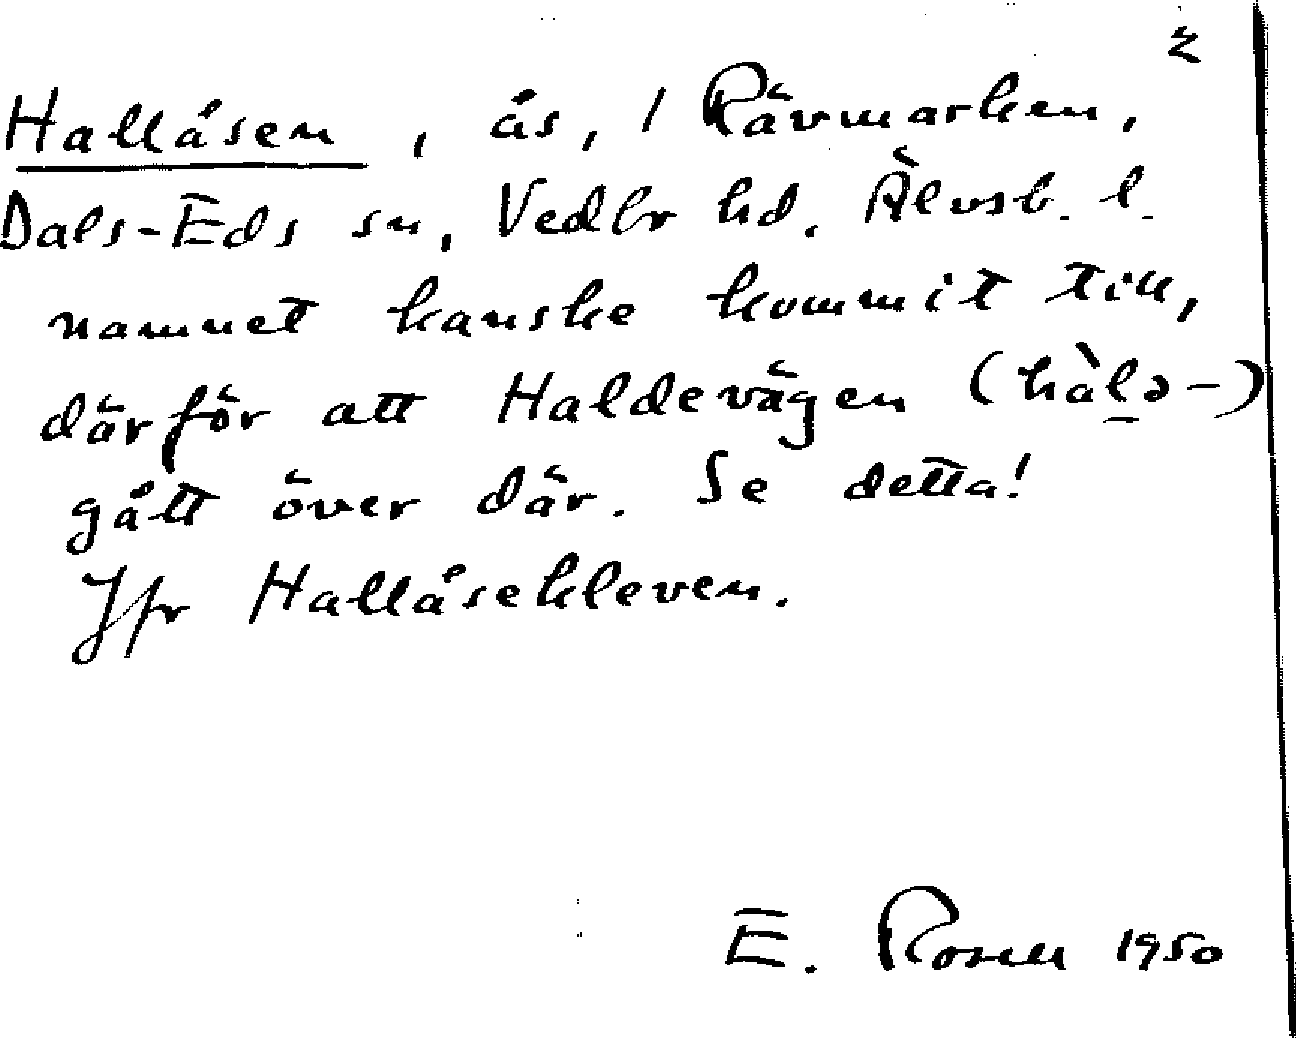 2
Hallåsen, ås, / Rävmarken,
Dals-Eds sn, Vedbr hd. Älvsb. l.
namnet kanske kommit till,
därför att Haldevägen (hàlə-)
gått över där. Se detta!
Jfr Hallåsekleven.
E. Rosell 1950